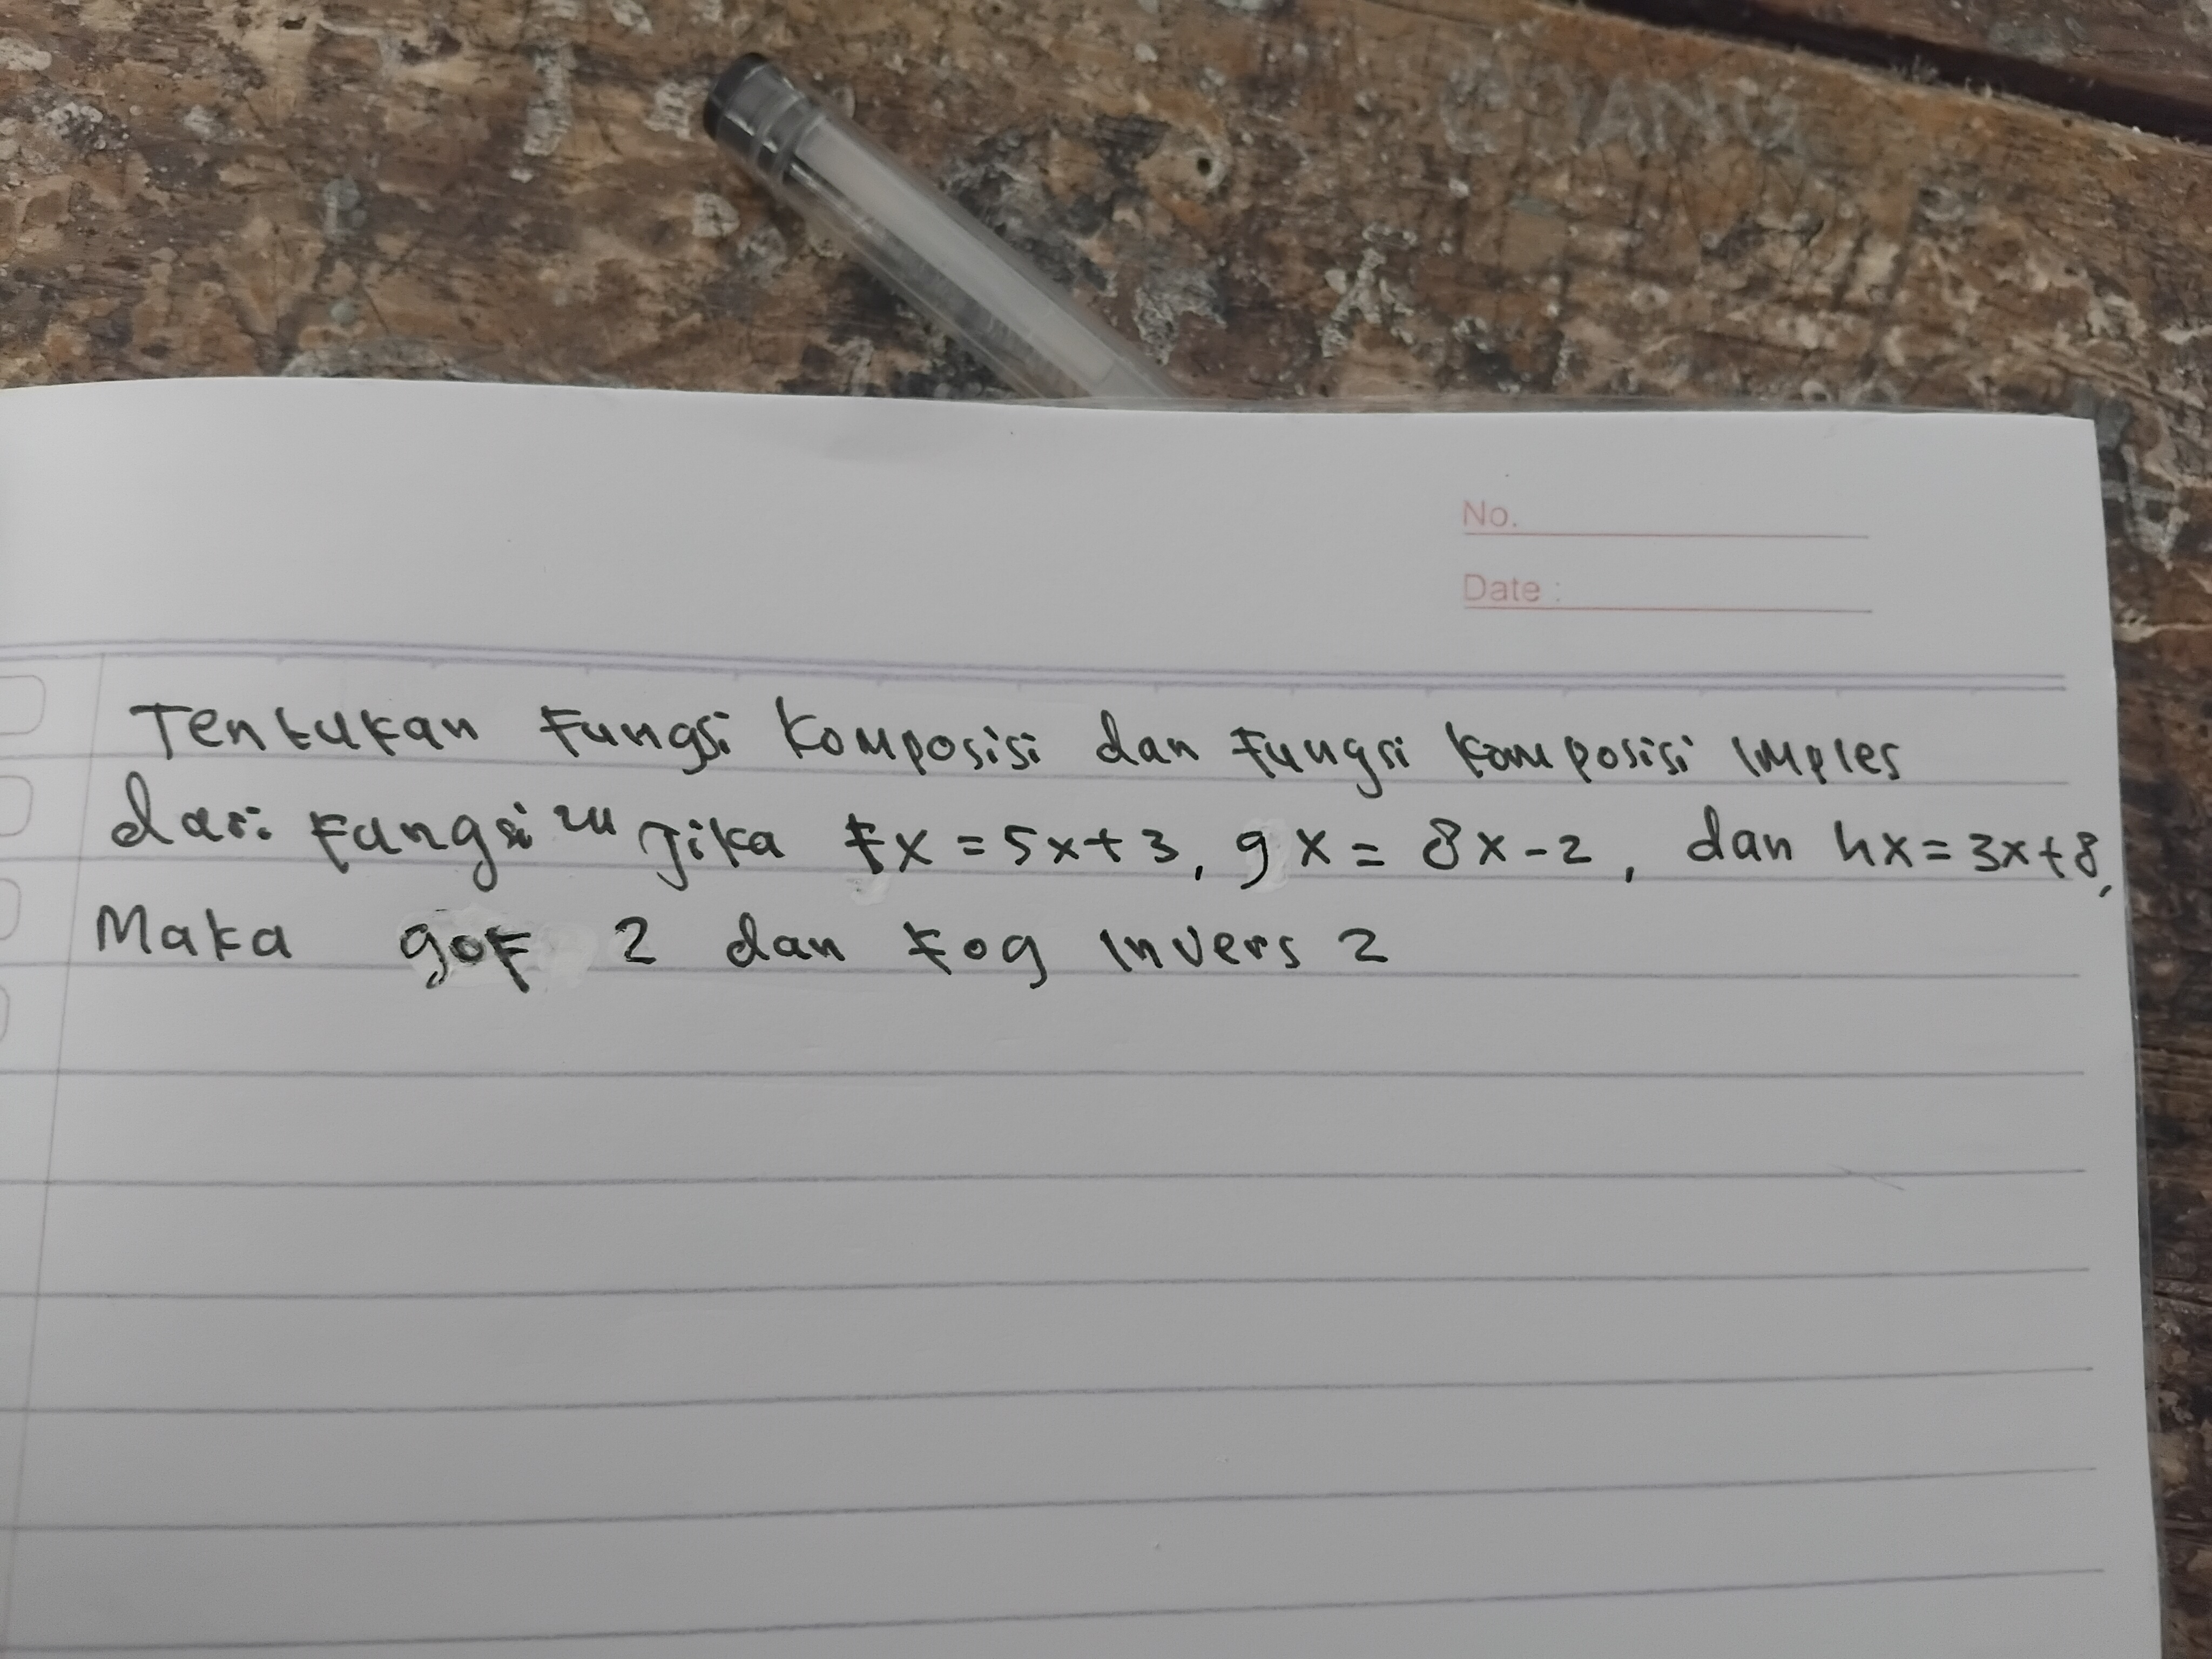 No.
Date :
Tentukan Fungsi Komposisi dan Fungsi Komposisi Imples
dari Fungsi ini Jika Fx = 5x+3, gx = 8x-2, dan hx = 3x+8,
Maka goF 2 dan Fog Invers 2